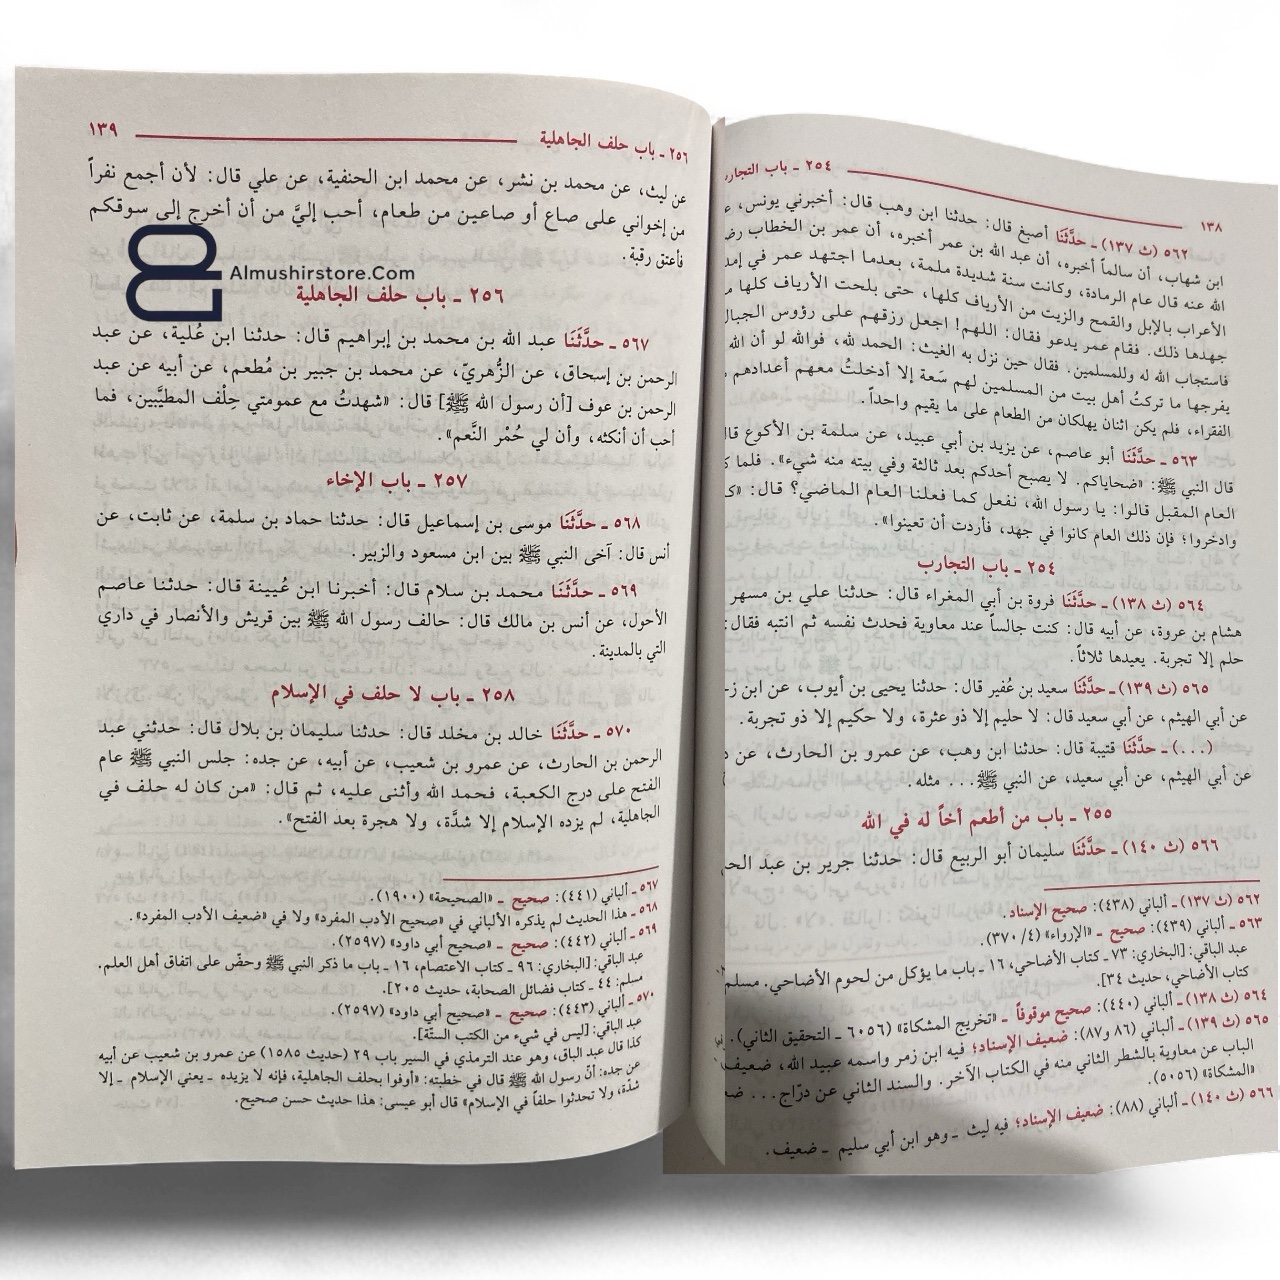 ١٣٨
٢٥٤ ـ باب التجارب
٥٦٢ (ث ١٣٧) ـ حدَّثَنَا أصبغ قال: حدثنا ابن وهب قال: أخبرني يونس،
ابن شهاب، أن سالماً أخبره، أن عبد الله بن عمر أخبره، أن عمر بن الخطاب
الله عنه قال عام الرمادة، وكانت سنة شديدة ملمة، بعدما اجتهد عمر في
الأعراب بالإبل والقمح والزيت من الأرياف كلها، حتى بلحت الأرياف كلها
جهدها ذلك. فقام عمر يدعو فقال: اللهم! اجعل رزقهم على رؤوس الجبال
فاستجاب الله له وللمسلمين. فقال حين نزل به الغيث: الحمد لله، فوالله لو أن الله
يفرجها ما تركتُ أهل بيت من المسلمين لهم سَعة إلا أدخلتُ معهم أعدادهم
الفقراء، فلم يكن اثنان يهلكان من الطعام على ما يقيم واحداً.
٥٦٣ ـ حدَّثَنَا أبو عاصم، عن يزيد بن أبي عبيد، عن سلمة بن الأكوع
قال النبي ﷺ: «ضحاياكم. لا يصبح أحدكم بعد ثالثة وفي بيته منه شيء». فلما
العام المقبل قالوا: يا رسول الله، نفعل كما فعلنا العام الماضي؟ قال:
وادخروا؛ فإن ذلك العام كانوا في جهد، فأردت أن تعينوا».
٢٥٤ ـ باب التجارب
٥٦٤ (ث ١٣٨) ـ حدَّثَنَا فروة بن أبي المغراء قال: حدثنا علي بن مسهر
هشام بن عروة، عن أبيه قال: كنت جالساً عند معاوية فحدث نفسه ثم انتبه فقال:
حلم إلا تجربة. يعيدها ثلاثاً.
٥٦٥ (ث ١٣٩) ـ حدَّثَنَا سعيد بن عُفير قال: حدثنا يحيى بن أيوب، عن ابن
عن أبي الهيثم، عن أبي سعيد قال: لا حليم إلا ذو عثرة، ولا حكيم إلا ذو تجربة.
(...) ـ حدَّثَنَا قتيبة قال: حدثنا ابن وهب، عن عمرو بن الحارث، عن
عن أبي الهيثم، عن أبي سعيد، عن النبي ﷺ... مثله.
٢٥٥ ـ باب من أطعم أخاً له في الله
٥٦٦ (ث ١٤٠) ـ حدَّثَنَا سليمان أبو الربيع قال: حدثنا جرير بن عبد
٥٦٢ (ث ١٣٧) ـ ألباني (٤٣٨): صحيح الإسناد.
٥٦٣ ـ ألباني (٤٣٩): صحيح ـ «الإرواء» (٣٧٠/٤).
عبد الباقي: [البخاري: ٧٣ ـ كتاب الأضاحي، ١٦ ـ باب ما يؤكل من لحوم الأضاحي. مسلم
كتاب الأضاحي، حديث ٣٤].
٥٦٤ (ث ١٣٨) ـ ألباني (٤٤٠): صحيح موقوفاً ـ «تخريج المشكاة» (٦٠٥٦ ـ التحقيق الثاني).
٥٦٥ (ث ١٣٩) ـ ألباني (٨٦ و٨٧): ضعيف الإسناد؛ فيه ابن زمر واسمه عبيد الله، ضعيف
الباب عن معاوية بالشطر الثاني منه في الكتاب الآخر. والسند الثاني عن درّاج...
«المشكاة» (٥٠٥٦).
٥٦٦ (ث ١٤٠) ـ ألباني (٨٨): ضعيف الإسناد؛ فيه ليث ـ وهو ابن أبي سليم ـ ضعيف.
٢٥٦ ـ باب حلف الجاهلية
١٣٩
عن ليث، عن محمد بن نشر، عن محمد ابن الحنفية، عن علي قال: لأن أجمع نفراً
من إخواني على صاع أو صاعين من طعام، أحب إليَّ من أن أخرج إلى سوقكم
فأعتق رقبة.
Almushirstore.Com
٢٥٦ ـ باب حلف الجاهلية
٥٦٧ ـ حدَّثَنَا عبد الله بن محمد بن إبراهيم قال: حدثنا ابن عُلية، عن عبد
الرحمن بن إسحاق، عن الزُّهريّ، عن محمد بن جبير بن مُطعم، عن أبيه عن عبد
الرحمن بن عوف [أن رسول الله ﷺ] قال: «شهدتُ مع عمومتي حِلْف المطيَّبين، فما
أحب أن أنكثه، وأن لي حُمْر النَّعم».
٢٥٧ ـ باب الإخاء
٥٦٨ ـ حدَّثَنَا موسى بن إسماعيل قال: حدثنا حماد بن سلمة، عن ثابت، عن
أنس قال: آخى النبي ﷺ بين ابن مسعود والزبير.
٥٦٩ ـ حدَّثَنَا محمد بن سلام قال: أخبرنا ابن عُيينة قال: حدثنا عاصم
الأحول، عن أنس بن مالك قال: حالف رسول الله ﷺ بين قريش والأنصار في داري
التي بالمدينة.
٢٥٨ ـ باب لا حلف في الإسلام
٥٧٠ ـ حدَّثَنَا خالد بن مخلد قال: حدثنا سليمان بن بلال قال: حدثني عبد
الرحمن بن الحارث، عن عمرو بن شعيب، عن أبيه، عن جده: جلس النبي ﷺ عام
الفتح على درج الكعبة، فحمد الله وأثنى عليه، ثم قال: «من كان له حلف في
الجاهلية، لم يزده الإسلام إلا شدَّة، ولا هجرة بعد الفتح».
٥٦٧ ـ ألباني (٤٤١): صحيح ـ «الصحيحة» (١٩٠٠).
٥٦٨ ـ هذا الحديث لم يذكره الألباني في «صحيح الأدب المفرد» ولا في «ضعيف الأدب المفرد».
٥٦٩ ـ ألباني (٤٤٢): صحيح ـ «صحيح أبي داود» (٢٥٩٧).
عبد الباقي: [البخاري: ٩٦ ـ كتاب الاعتصام، ١٦ ـ باب ما ذكر النبي ﷺ وحضّ على اتفاق أهل العلم.
مسلم: ٤٤ ـ كتاب فضائل الصحابة، حديث ٢٠٥].
٥٧٠ ـ ألباني (٤٤٣): صحيح ـ «صحيح أبي داود» (٢٥٩٧).
عبد الباقي: [ليس في شيء من الكتب الستّة].
كذا قال عبد الباق، وهو عند الترمذي في السير باب ٢٩ (حديث ١٥٨٥) عن عمرو بن شعيب عن أبيه
عن جده: أنّ رسول الله ﷺ قال في خطبته: «أوفوا بحلف الجاهلية، فإنه لا يزيده ـ يعني الإسلام ـ إلا
شدّة، ولا تحدثوا حلفاً في الإسلام» قال أبو عيسى: هذا حديث حسن صحيح.